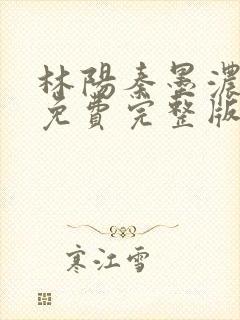 林陽秦墨濃
免費完整版
寒江雪